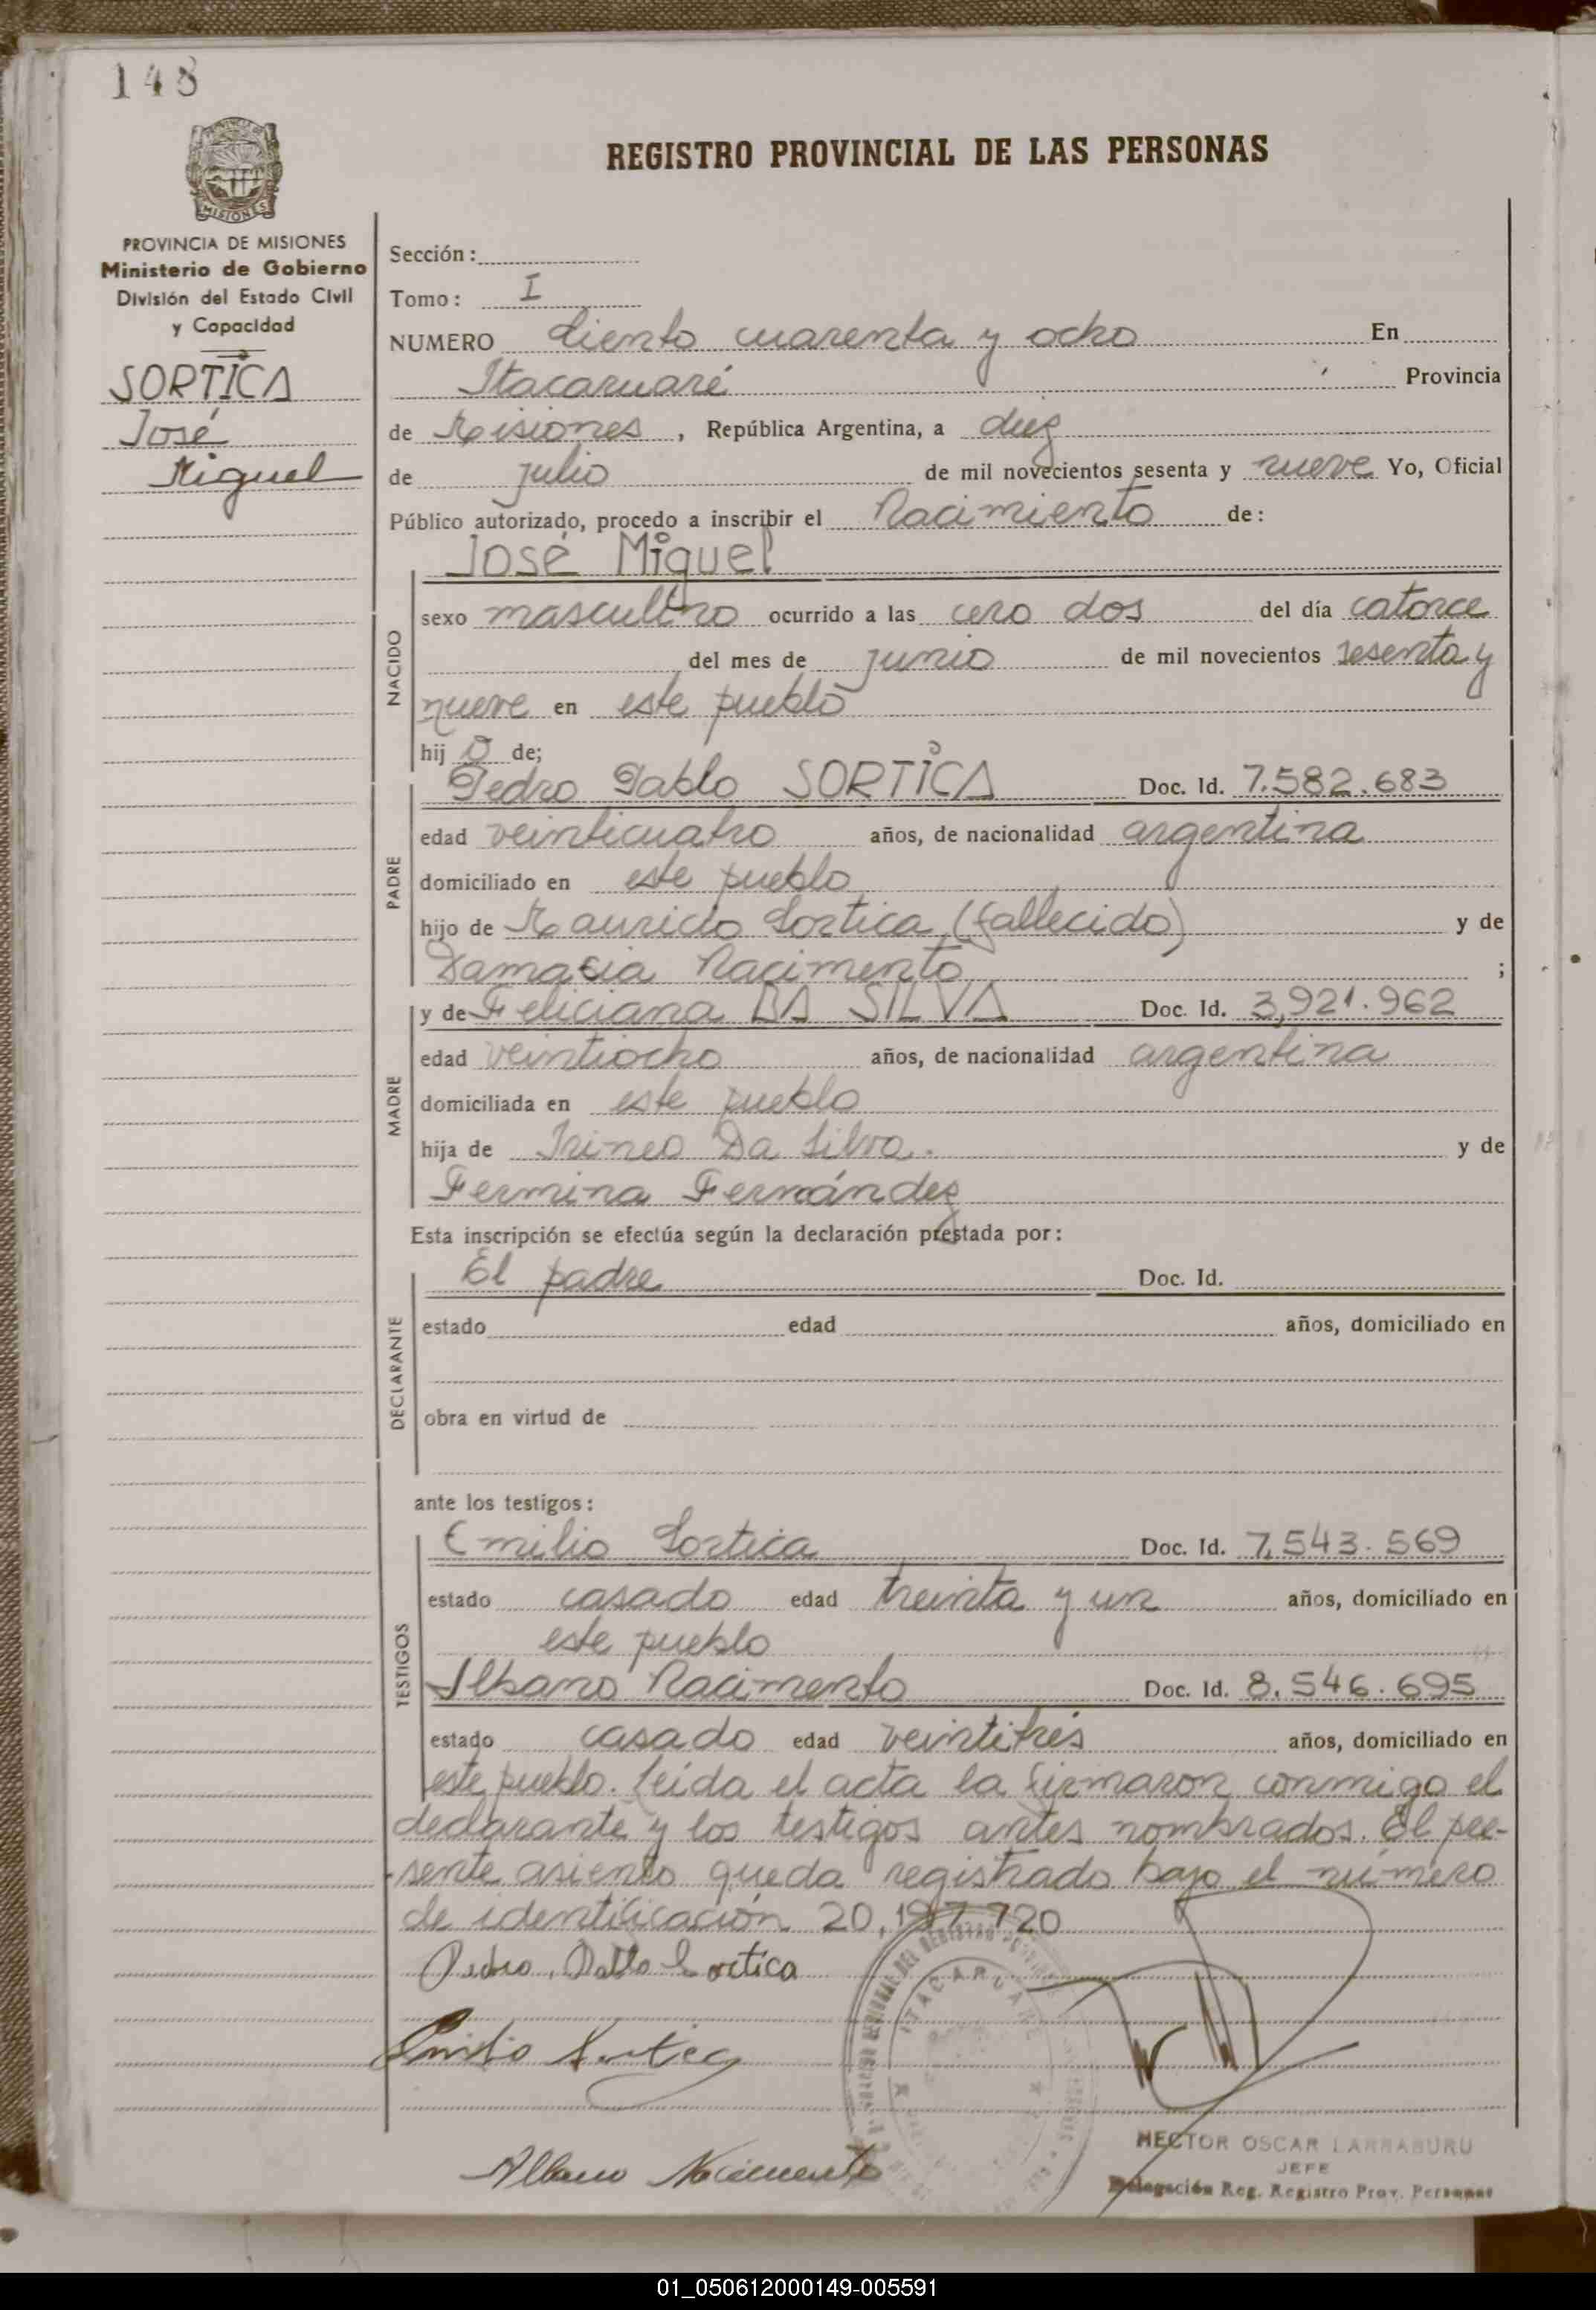 148
REGISTRO PROVINCIAL DE LAS PERSONAS
MISIONES
PROVINCIA DE MISIONES
Ministerio de Gobierno
División del Estado Civil
y Capacidad
SORTICA
José
Miguel
Sección:
Tomo: I
NUMERO Ciento cuarenta y ocho En
Itacaruaré Provincia
de Misiones, República Argentina, a diez
de julio de mil novecientos sesenta y nueve Yo, Oficial
Público autorizado, procedo a inscribir el Nacimiento de:
José Miguel
NACIDO
sexo masculino ocurrido a las cero dos del día catorce
del mes de junio de mil novecientos sesenta y
nueve en este pueblo
hij o de;
PADRE
Pedro Pablo SORTICA Doc. Id. 7.582.683
edad veinticuatro años, de nacionalidad argentina
domiciliado en este pueblo
hijo de Mauricio Sortica (fallecido) y de
Damasia Nacimento ;
MADRE
y de Feliciana DA SILVA Doc. Id. 3,921.962
edad veintiocho años, de nacionalidad argentina
domiciliada en este pueblo
hija de Irineo Da Silva. y de
Fermina Fernández
Esta inscripción se efectúa según la declaración prestada por:
DECLARANTE
El padre Doc. Id.
estado edad años, domiciliado en
obra en virtud de
ante los testigos:
TESTIGOS
Emilio Sortica Doc. Id. 7.543.569
estado casado edad treinta y un años, domiciliado en
este pueblo
Albano Nacimento Doc. Id. 8.546.695
estado casado edad veintitrés años, domiciliado en
este pueblo. Leída el acta la firmaron conmigo el
declarante y los testigos antes nombrados. El pre-
-sente asiento queda registrado bajo el número
de identificación 20.197.720
Pedro Pablo Sortica
Emilio Sortica
Albano Nacimento
ITACARUARE
HECTOR OSCAR LARRABURU
JEFE
Delegación Reg. Registro Prov. Personas
01_050612000149-005591